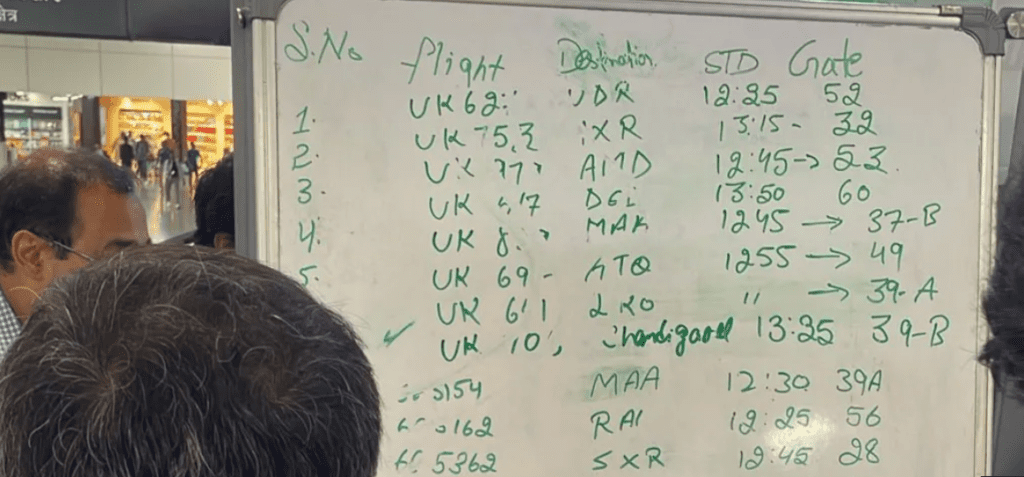 क्षेत्र
S.No flight Destination STD Gate
UK 62 UDR 12:25 52
1. UK 75,3 IXR 13:15- 32
2. UK 77 AMD 12:45→ 53
3. UK DEL 13:50 60
4. UK 8 12 45 → 37-B
5. UK 69- ATQ 1255 → 49
UK 611 LKO " → 39-A
✓ UK 10 Chandigarh 13:25 39-B
5154 MAA 12:30 39A
5162 RAI 12:25 56
5362 SXR 12:45 28